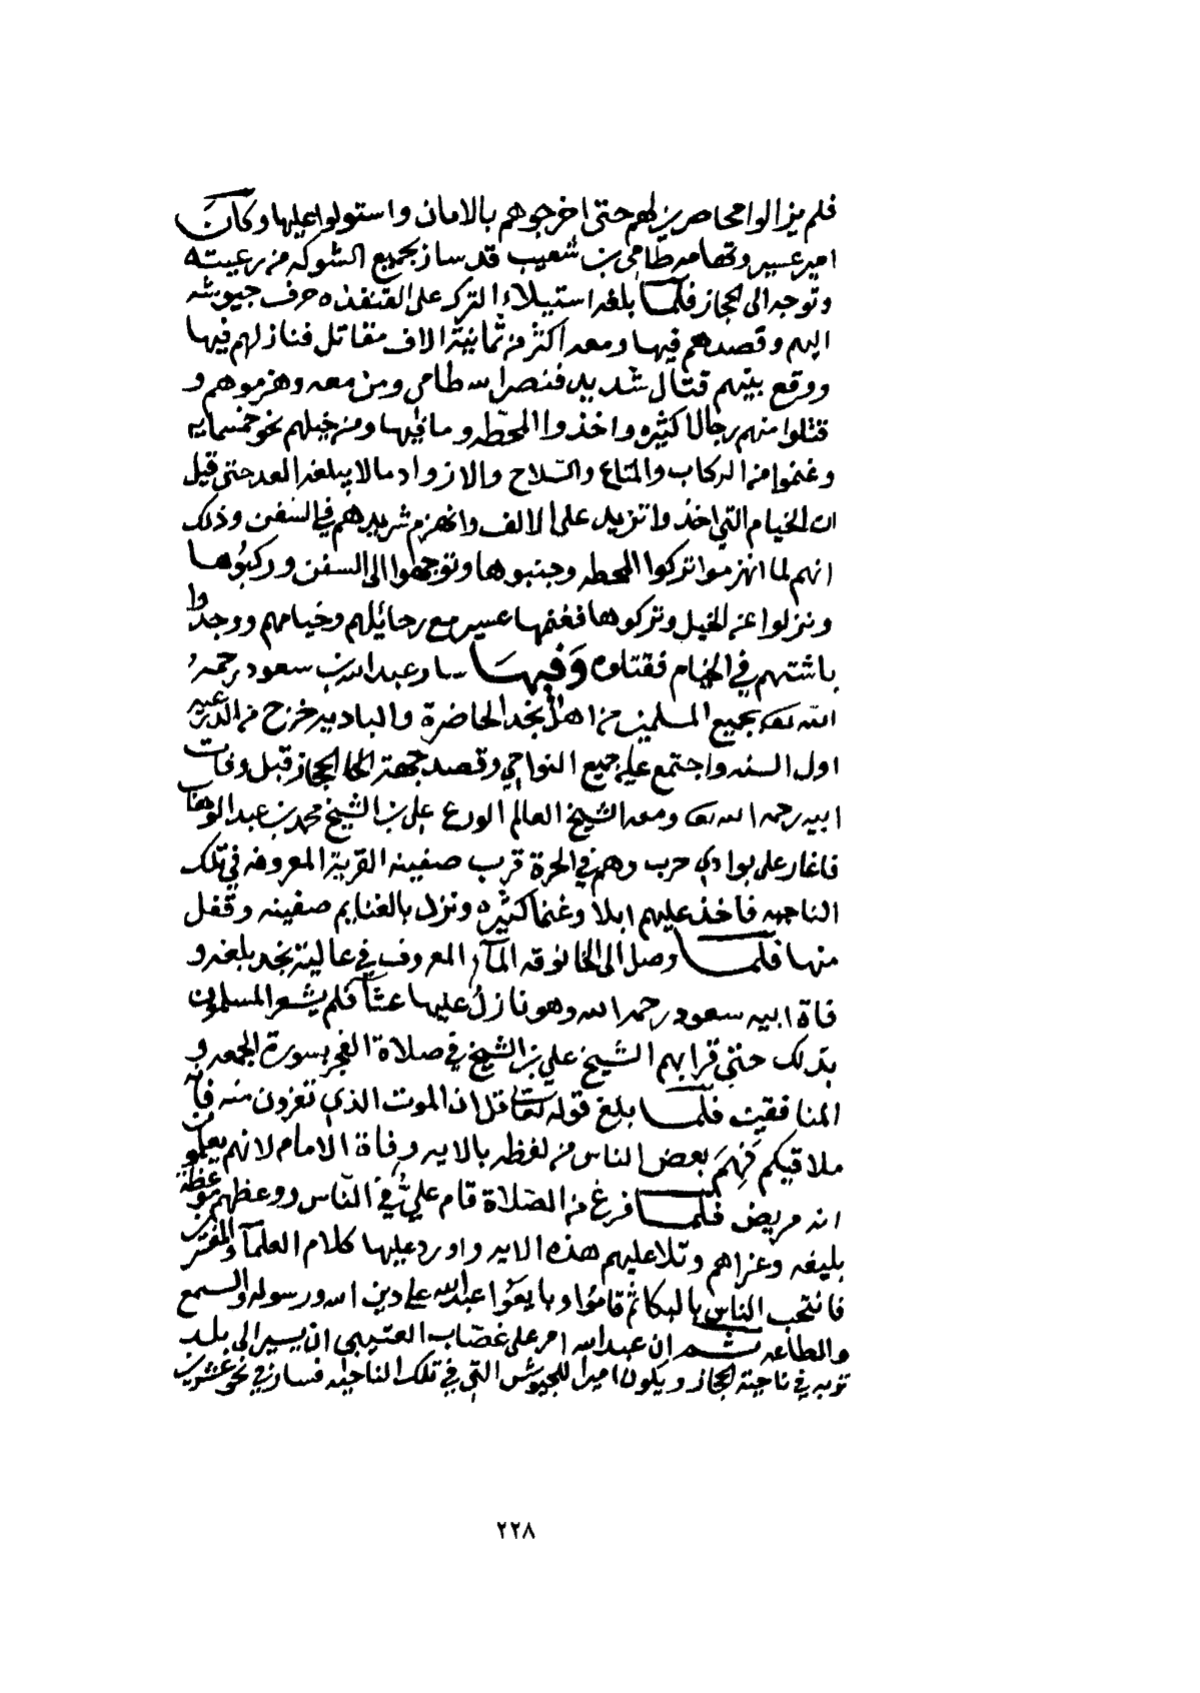 فلم يزالوا محاصرين لهم حتى اخرجوهم بالامان واستولوا عليها وكان
امير عسير وتهامه طامي بن شعيب قد سار بجميع الشوكه من رعيته
وتوجه الى الحجاز فلما بلغه استيلاء الترك على القنفذه حرف جيوشه
اليهم وقصدهم فيها ومعه اكثر من ثمانية الاف مقاتل فنازلهم فيها
ووقع بينهم قتال شديد فنصر الله طامي ومن معه وهزموهم و
قتلوا منهم رجالا كثيره واخذوا المحطه وما فيها ومن خيلهم نحو خمسمايه
وغنموا من الركاب والمتاع والسلاح والازواد مالا يبلغه العد حتى قيل
ان الخيام التي اخذوا تزيد على الالف وانهزم شريدهم في السفن وذلك
انهم لما انهزموا تركوا المحطه وجنبوها وتوجهوا الى السفن وركبوها
ونزلوا عن الخيل وتركوها فغنمها عسير مع رحائلهم وخيامهم ووجدوا
باشتهم في الخيام فقتلوه وفيها سار عبدالله بن سعود رحمه
الله تعالى بجميع المسلمين من اهل نجد الحاضرة والباديه خرج من الدرعيه
اول السنه واجتمع عليه جميع النواحي وقصد جهة الحجاز قبل وفات
ابيه رحمه الله تعالى ومعه الشيخ العالم الورع علي بن الشيخ محمد بن عبدالوهاب
فاغار على بوادي حرب وهم في الحرة قرب صفينه القرية المعروفه في تلك
الناحيه فاخذ عليهم ابلا وغنما كثيره ونزل بالغنايم صفينه وقفل
منها فلما وصل الى الخانوقه المآء المعروف في عالية نجد بلغه و
فاة ابيه سعود رحمه الله وهو نازل عليها عشآ فلم يشعر المسلمون
بذلك حتى قرا بهم الشيخ علي بن الشيخ في صلاة الفجر بسورة الجمعه و
المنافقين فلما بلغ قوله تعالى قل ان الموت الذي تفرون منه فانه
ملاقيكم فهم بعض الناس من لفظه بالايه وفاة الامام لانهم يعلمون
انه مريض فلما فرغ من الصلاة قام علي في الناس ووعظهم موعظة
بليغه وعزاهم وتلا عليهم هذه الايه واورد عليها كلام العلمآ والمفسرين
فانتحب الناس بالبكا ثم قاموا وبايعوا عبدالله على دين الله ورسوله والسمع
والطاعه ثم ان عبدالله امر على غصاب العتيبي ان يسير الى بلد
تربه في ناحية الحجاز ويكون اميرا للجيوش التي في تلك الناحيه فسار في نحو عشرين
٢٢٨